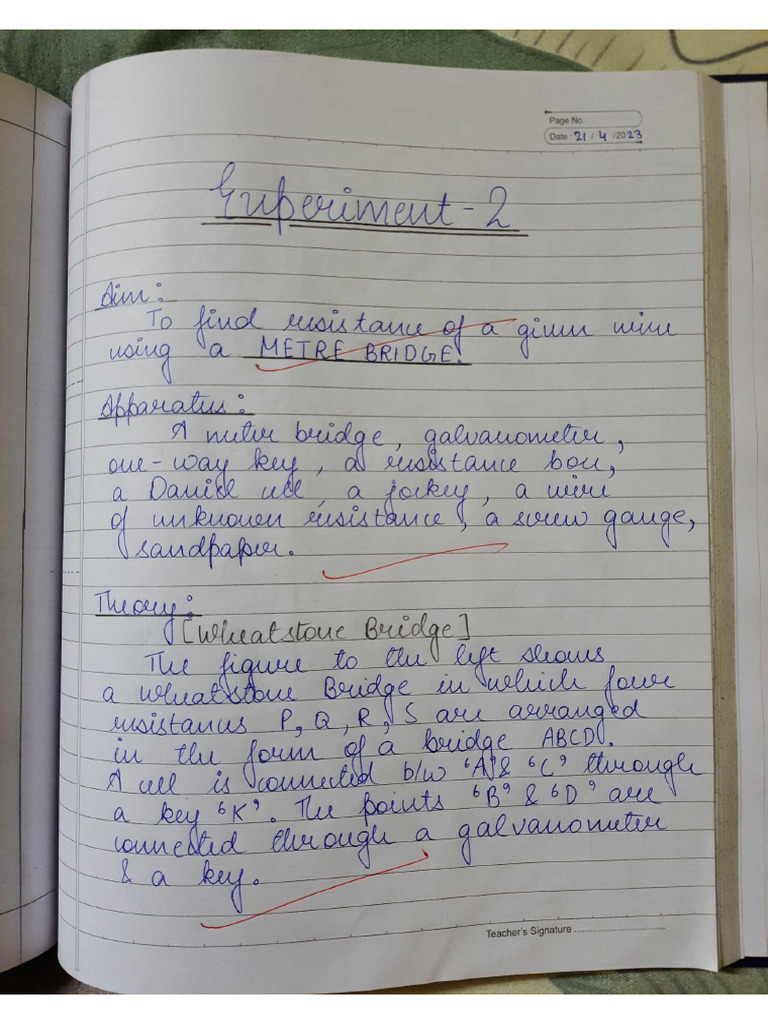 Page No.
Date : 21 / 4 /2023
Experiment - 2
Aim :
To find resistance of a given wire
using a METRE BRIDGE.
Apparatus :
A meter bridge, galvanometer,
one-way key, a resistance box,
a Daniell cell, a jockey, a wire
of unknown resistance, a screw gauge,
sandpaper.
Theory :
[Wheatstone Bridge]
The figure to the left shows
a wheatstone Bridge in which four
resistances P, Q, R, S are arranged
in the form of a bridge ABCD.
A cell is connected b/w 'A' & 'C' through
a key 'K'. The points 'B' & 'D' are
connected through a galvanometer
& a key.
Teacher's Signature